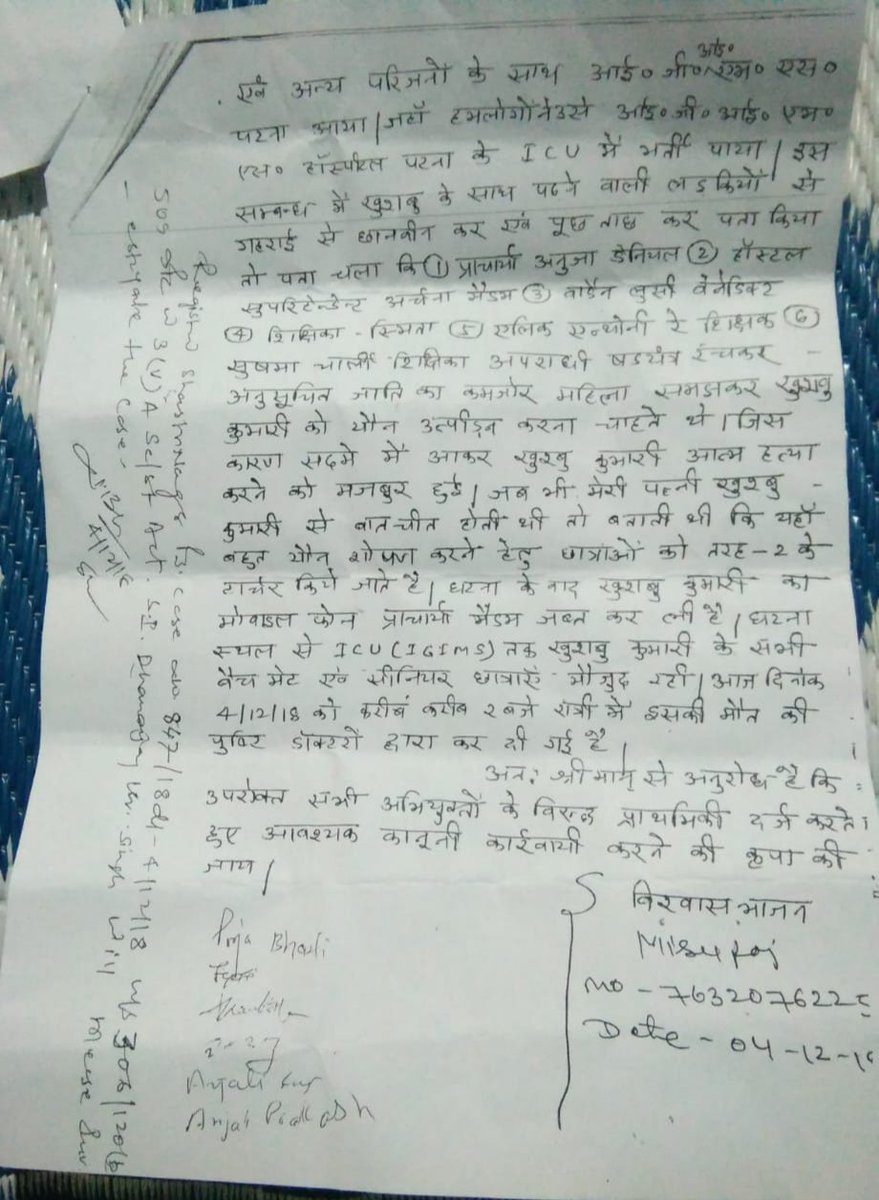 आई०
एवं अन्य परिजनों के साथ आई० जी० एम० एस०
पटना आया। जहाँ हमलोगोंने उसे आई० जी० आई० एम०
एस० हॉस्पीटल पटना के ICU में भर्ती पाया। इस
सम्बन्ध में खुशबु के साथ पढने वाली लडकियों से
गहराई से छानवीन कर एवं पूछ ताछ कर पता किया
तो पता चला कि ① प्राचार्या अनुजा डेनियल ② हॉस्टल
सुपरिटेन्डेन्ट अर्चना मैडम ③ वार्डेन लुसी वेनेडिक्ट
④ शिक्षिका - स्मिता ⑤ एलिक एन्थोनी रे शिक्षक ⑥
सुषमा चार्ली शिक्षिका अपराधी षडयंत्र रंचकर -
अनुसूचित जाति का कमजोर महिला समझकर खुशबु
कुमारी को यौन उत्पीड़न करना चाहते थे। जिस
कारण सदमे में आकर खुशबु कुमारी आत्म हत्या
करने को मजबुर हुई। जब भी मेरी पत्नी खुशबु -
कुमारी से बातचीत होती थी तो बताती थी कि यहाँ
बहुत यौन शोषण करने हेतु छात्राओं को तरह-2 के
टार्चर किये जाते है। घटना के वाद खुशबु कुमारी का
मोवाइल फोन प्राचार्या मैडम जब्त कर ली है। घटना
स्थल से ICU (IGIMS) तक खुशबु कुमारी के सभी
बैच मेट एवं सीनियर छात्राएँ मौजुद रही। आज दिनांक
4/12/18 को करीब करीब 2 बजे रात्री में इसकी मौत की
पुष्टि डॉक्टरों द्वारा कर दी गई है।
अतः श्रीमान् से अनुरोध है कि
उपरोक्त सभी अभियुक्तों के विरुद्ध प्राथमिकी दर्ज करते
हुए आवश्यक कानूनी कार्रवायी करने की कृपा की
जाय।
विश्वास भाजन
Mo - 7632076225
Date - 04-12-18
Puja Bharti
Anjali
Anjali Prakash
Register Shastrinagar P.S. case no 847/18 dt - 4/12/18 u/s 306/120(B)
3(V)A Sc/St Act. S.I. Singh will
the case.